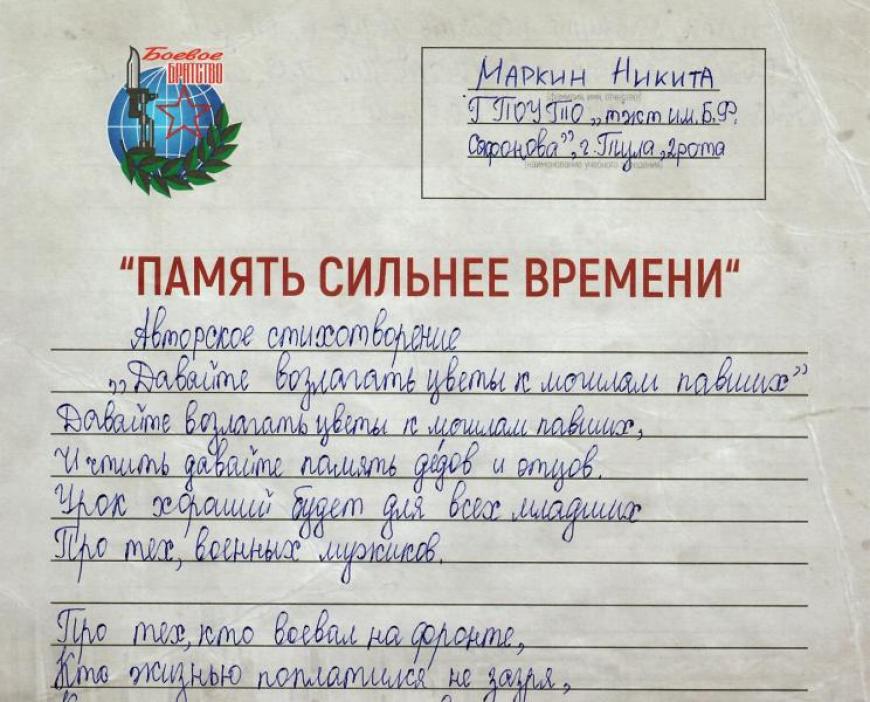 Боевое
БРАТСТВО
Маркин Никита
(фамилия, имя, отчество)
ГПОУ ТО „тжт им. Б.Ф.
Сафонова”, г. Тула, 2 рота
(наименование учебного заведения)
“ПАМЯТЬ СИЛЬНЕЕ ВРЕМЕНИ“
Авторское стихотворение
„Давайте возлагать цветы к могилам павших”
Давайте возлагать цветы к могилам павших,
И чтить давайте память дедов и отцов.
Урок хороший будет для всех младших
Про тех, военных мужиков.
Про тех, кто воевал на фронте,
Кто жизнью поплатился не зазря,